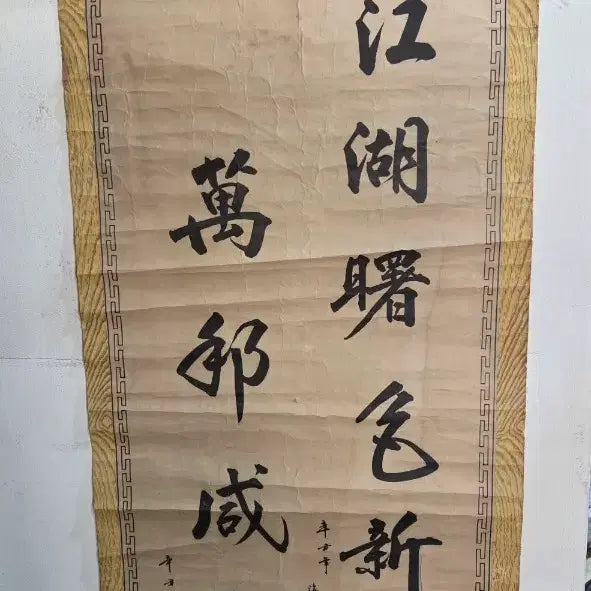 江湖曙色新
萬邦咸